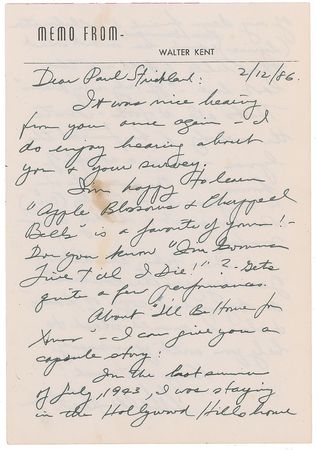 MEMO FROM-
WALTER KENT
Dear Paul Strickland: 2/12/86.
It was nice hearing
from you once again – I
do enjoy hearing about
you & your survey.
I'm happy to learn
"Apple Blossoms & Chappel
Bells" is a favorite of yours! –
Do you know "I'm Gonna
Live 'Til I Die!"? – Gets
quite a few performances.
About "I'll Be Home for
Xmas" – I can give you a
capsule story:
In the last summer
of July, 1943, I was staying
in the Hollywood Hills home